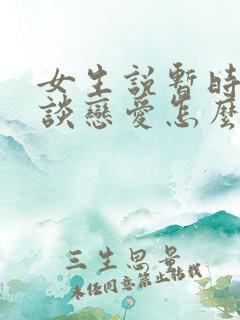 女生説暫時
談戀愛怎麼
三生思景
未經同意禁止轉載